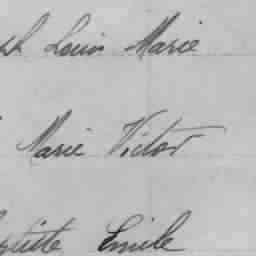 Louis Marie
Marie Victor
Emile